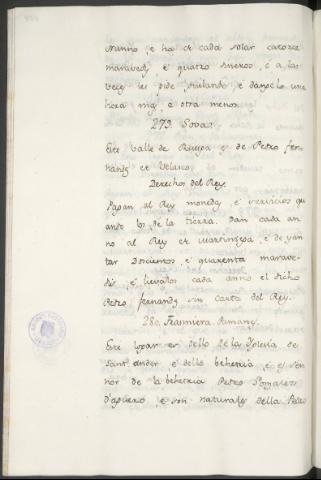 Nunno, e ha en cada solar catorze
maravedis e quatro sueros, e a las
veces les pide yantar, e danoslo una
hera mas, e otra menos.
279. Sovar
Este valle de Ruypa es de Pedro fer-
nandes de Velasco.
Derechos del Rey.
Pagan al Rey moneda, e servicios qu
ando los de la tierra. Dan cada an-
no al Rey en martiniega, e de yan-
tar Doscientos, e quarenta marave-
dis, e lievalos cada anno el dicho
Pedro fernandes sin carta del Rey.
280. Trasmiera Rumanes.
Este logar es dello de la Yglesia de
Sant ander, e dello behetria, e es sen-
nor de la behetria Pedro Gonzalez
d'aguero, e son naturales della Pedro